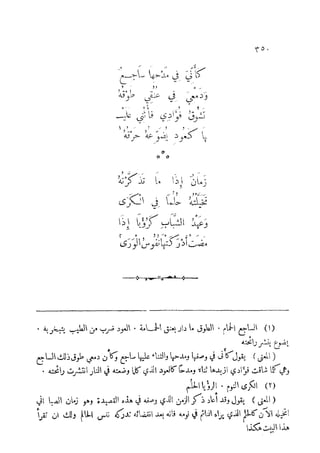 ٣٥٠
كأنّي في مدحها ساجع
ودمعي في عنقي طوقه
تشوق فؤادي فأثني عليـ
ـها كعود يضوعه حرقه ١
***
زمان إذا ما تذكرته
تخيلته حلما في الكرى
وعهد الشباب كرؤيا إذا
مضت أدركتها نفوس الورى ٢
(١) الساجع الحمام ٠ الطوق ما دار بعنق الحمامة ٠ العود ضرب من الطيب يتبخر به ٠
يضوع ينشر رائحته
( المعنى ) يقول كأني في وصفها ومدحها والثناء عليها ساجع وكأن دمعي طوق ذلك الساجع
وهي كلما شاقت فؤادي ازيدها ثناء ومدحا كالعود الذي كلما وضعته في النار انتشرت رائحته ٠
(٢) الكرى النوم ٠ الرؤيا الحلم
( المعنى ) يقول وقد أعاد ذكر الزمن الذي وصفه في هذه القصيدة وهو زمان الصبا اني
اتخيله الآن كالحلم الذي يراه النائم في نومه فانه بعد انقضائه تدركه نفس الحالم ولك ان تقرأ
هذا البيت هكذا